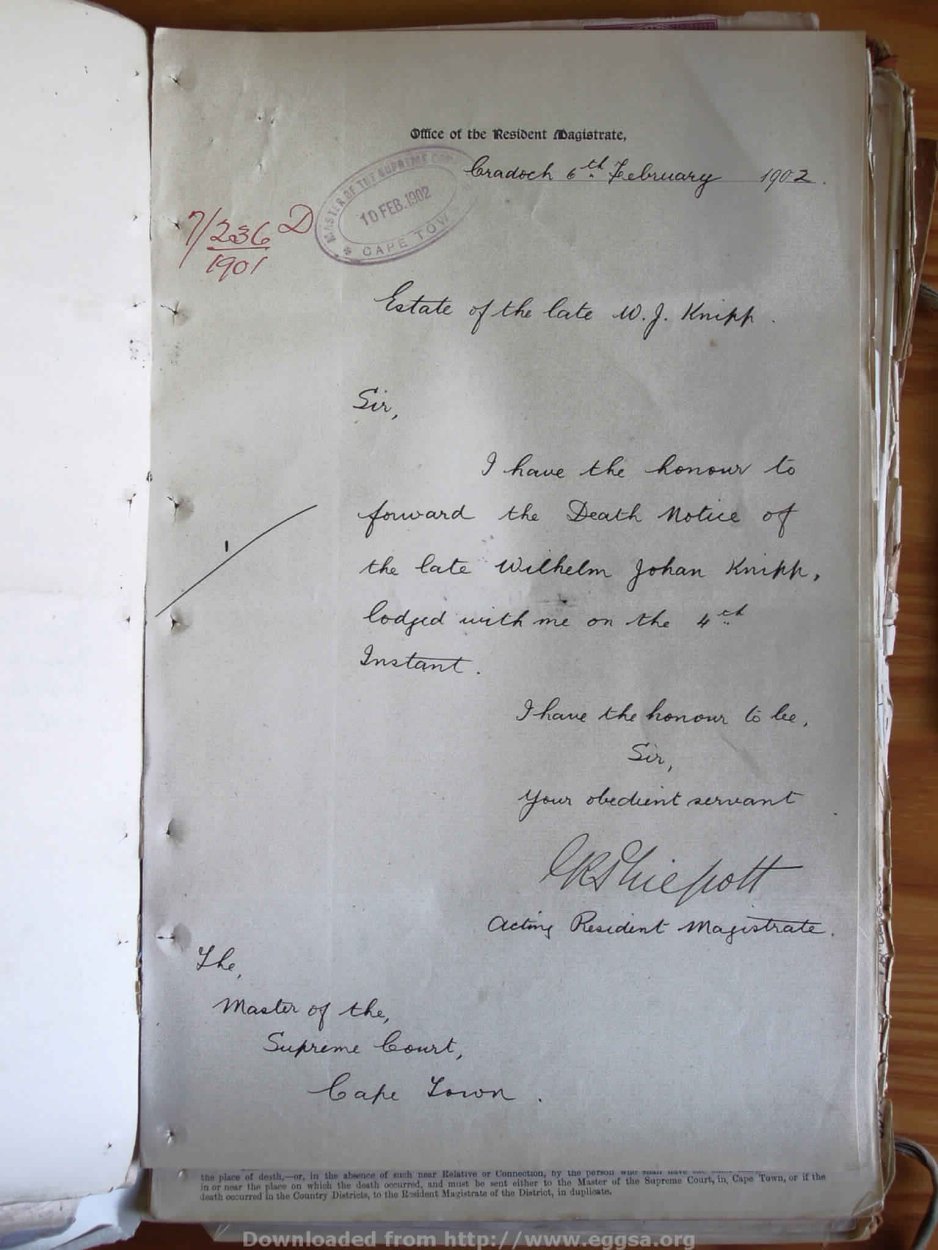 Office of the Resident Magistrate,
Cradock 6th February 1902.
MASTER OF THE SUPREME
10 FEB. 1902
CAPE TOWN
7/236 D
1901
Estate of the late W. J. Knipp.
Sir,
I have the honour to
forward the Death Notice of
the late Wilhelm Johan Knipp,
lodged with me on the 4th
Instant.
I have the honour to be,
Sir,
Your obedient servant
Acting Resident Magistrate.
The,
Master of the,
Supreme Court,
Cape Town.
the place of death,—or, in the absence of such near Relative or Connection, by the person who shall have
in or near the place on which the death occurred, and must be sent either to the Master of the Supreme Court, in, Cape Town, or if the
death occurred in the Country Districts, to the Resident Magistrate of the District, in duplicate.
Downloaded from http://www.eggsa.org